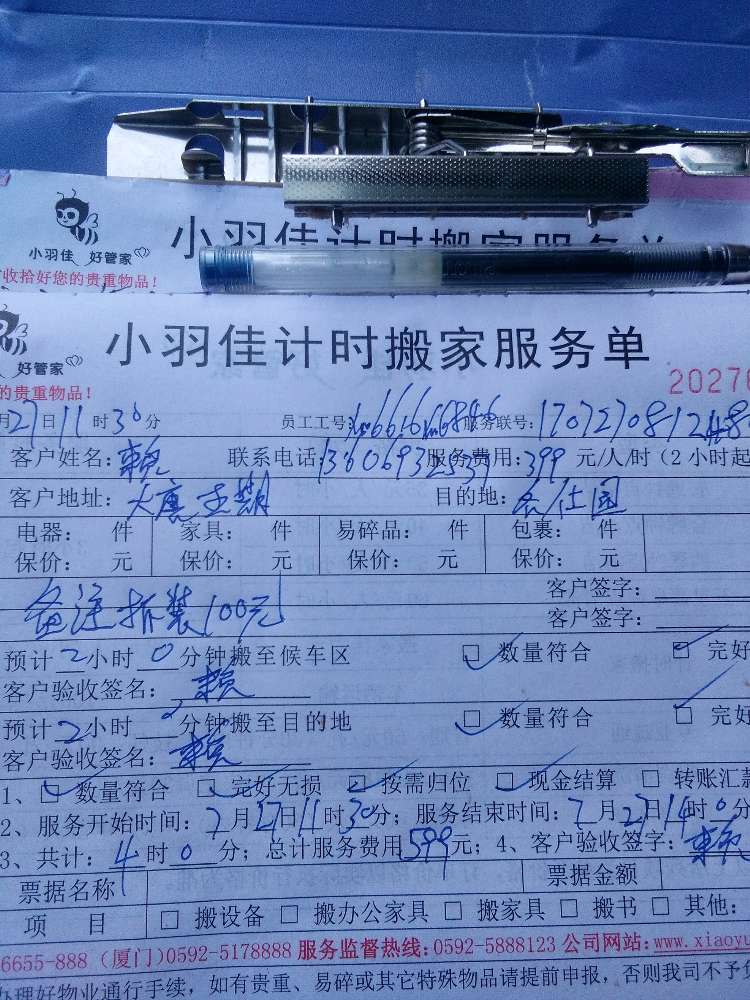 小羽佳 好管家
小羽佳计时搬家服务单
收拾好您的贵重物品!
好管家
小羽佳计时搬家服务单
的贵重物品!
2027
月27日11时30分 员工工号: 服务联号:
客户姓名:赖 联系电话: 服务费用:399元/人/时(2小时起
客户地址:大唐 目的地:
电器: 件 家具: 件 易碎品: 件 包裹: 件
保价: 元 保价: 元 保价: 元 保价: 元
客户签字:
备注拆装100元
客户签字:
预计2小时0分钟搬至候车区 □ 数量符合 □ 完好
客户验收签名:赖
预计2小时 分钟搬至目的地 □ 数量符合 □ 完好
客户验收签名:赖
1、□ 数量符合 □ 完好无损 □ 按需归位 □ 现金结算 □ 转账汇款
2、服务开始时间:7月27日11时30分; 服务结束时间:7月27日14时0分
3、共计:4时0分; 总计服务费用599元; 4、客户验收签字:赖
票据名称 票据金额
项 目 □ 搬设备 □ 搬办公家具 □ 搬家具 □ 搬书 □ 其他:
6655-888 (厦门)0592-5178888 服务监督热线:0592-5888123 公司网站:www.xiaoyu
办理好物业通行手续, 如有贵重、易碎或其它特殊物品请提前申报, 否则我司不予